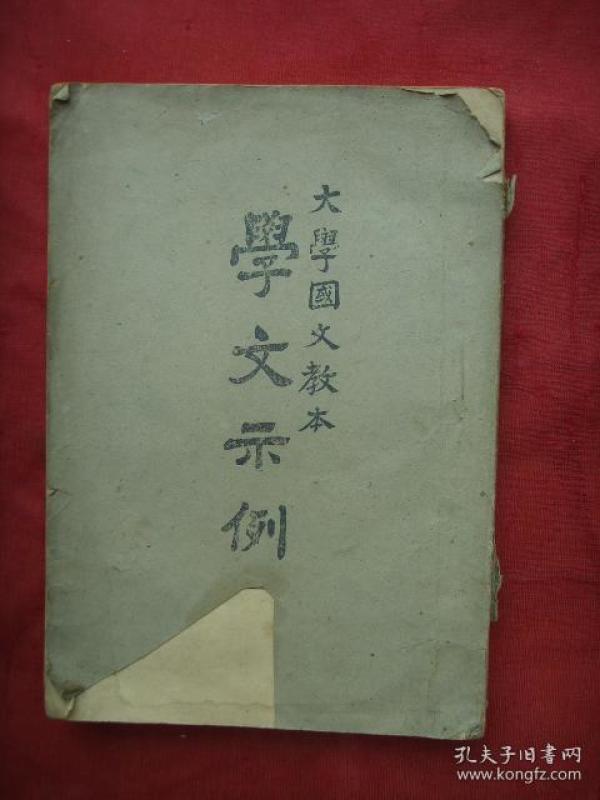 大學國文教本
學文示例
孔夫子旧書网
www.kongfz.com